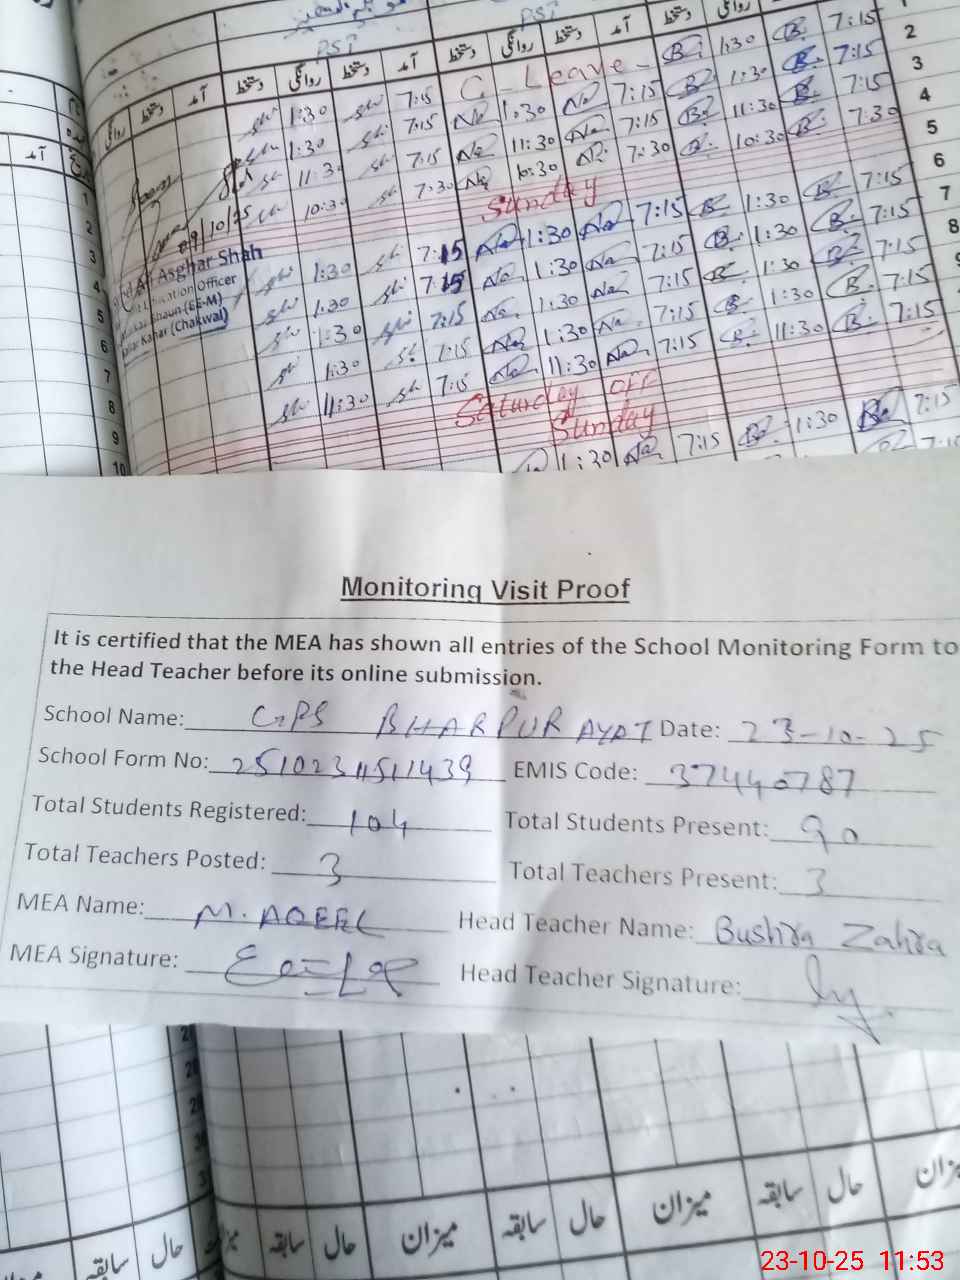 PST PST
دستخط روانگی دستخط آمد دستخط روانگی دستخط آمد
1:30 7:15 C. Leave - B. 1:30 B. 7:15
1:30 7:15 1:30 7:15 B. 1:30 B. 7:15
11:30 7:15 11:30 7:15 B. 11:30 B. 7:15
10:30 7:30 10:30 7:30 B. 10:30 B. 7:30
Sunday
09/10/25
1:30 7:15 1:30 7:15 B. 1:30 B. 7:15
Asghar Shah
Education Officer
(EE-M)
Kallar Kahar (Chakwal)
1:30 7:15 1:30 7:15 B. 1:30 B. 7:15
1:30 7:15 1:30 7:15 B. 1:30 B. 7:15
1:30 7:15 1:30 7:15 B. 1:30 B. 7:15
11:30 7:15 11:30 7:15 B. 11:30 B. 7:15
Saturday off
Sunday
1:30 7:15 B. 1:30 B. 7:15
Monitoring Visit Proof
It is certified that the MEA has shown all entries of the School Monitoring Form to
the Head Teacher before its online submission.
School Name: GPS BHARPUR AYAT Date: 23-10-25
School Form No: 2510231511439 EMIS Code: 37440787
Total Students Registered: 104 Total Students Present: 90
Total Teachers Posted: 3 Total Teachers Present: 3
MEA Name: M. AQEEL Head Teacher Name: Bushra Zahra
MEA Signature: Head Teacher Signature:
سابقہ حال میزان سابقہ حال میزان سابقہ حال میزان
23-10-25 11:53